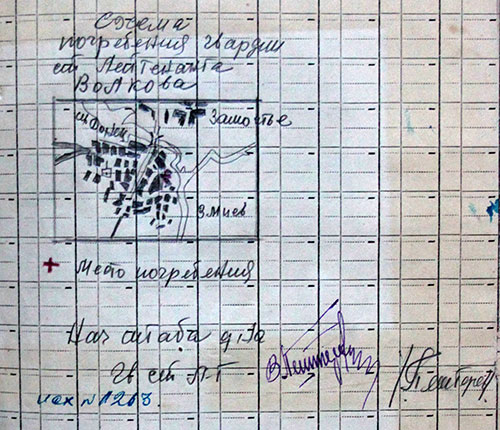 Схема
погребения гвардии
ст. Лейтенанта
Волкова
Замостье
Змиев
Место погребения
Нач штаба д-на
Гв ст Л-т
исх №1263.